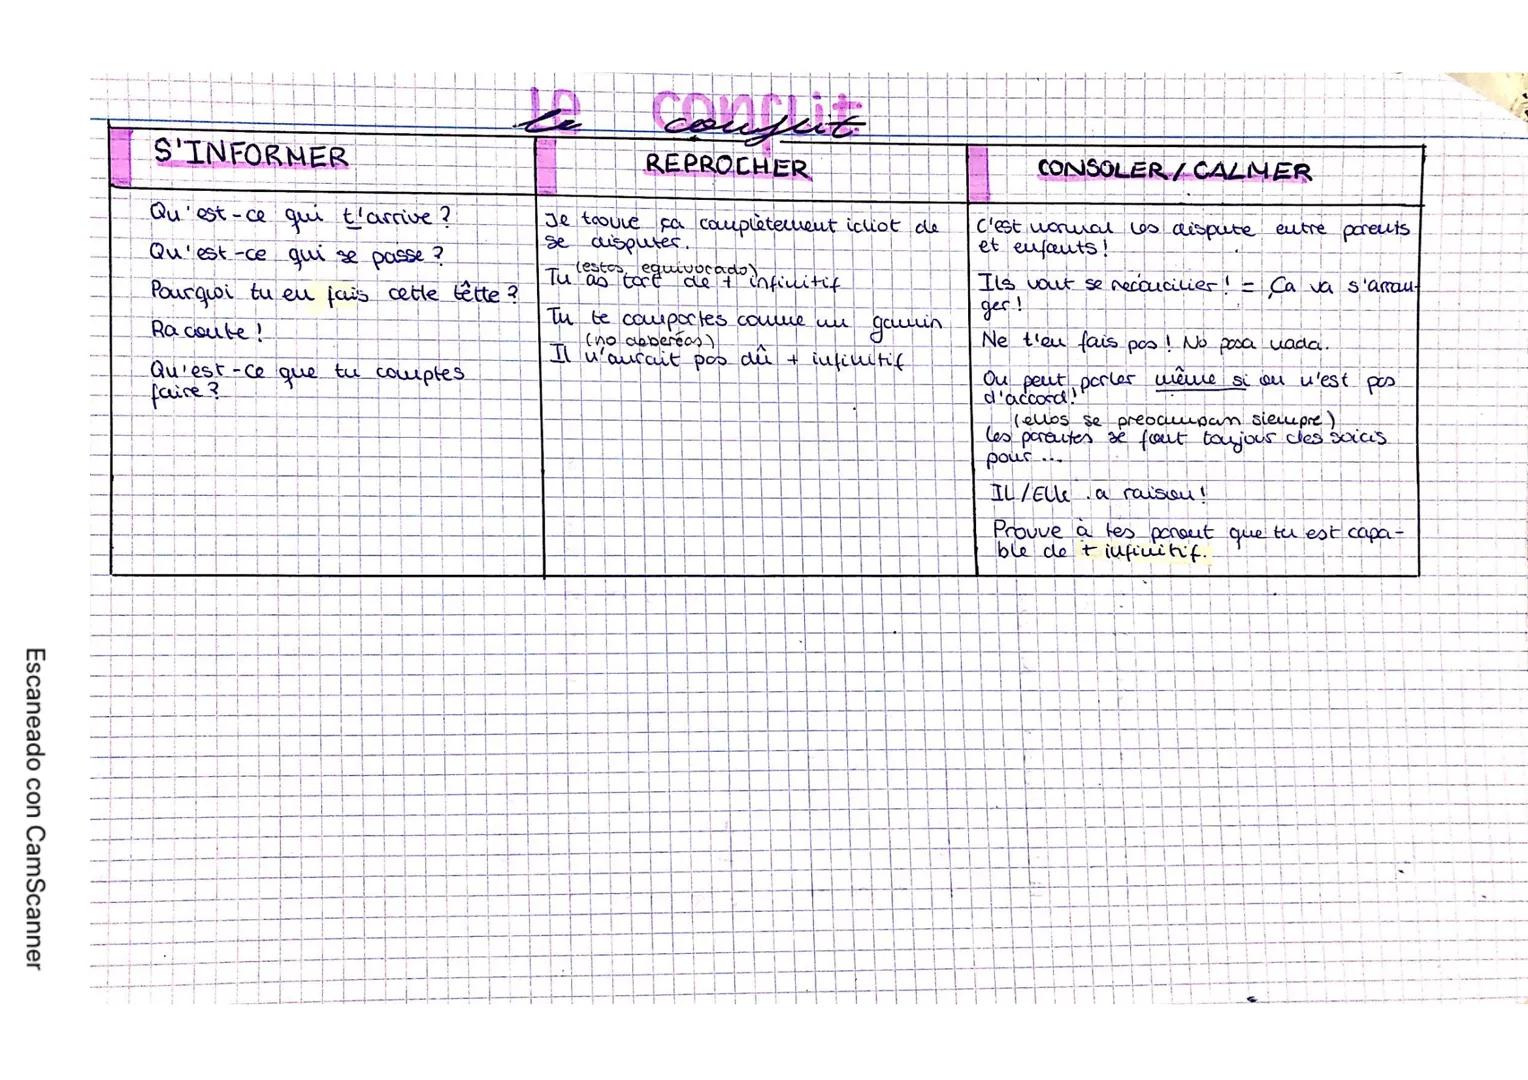 le conflit
S'INFORMER
Qu'est-ce qui t'arrive ?
Qu'est-ce qui se passe ?
Pourquoi tu en fais cette têtte ?
Raconte !
Qu'est-ce que tu comptes
faire ?
REPROCHER
Je trouve ça complètement idiot de
se disputer.
(estas equivocado)
Tu as tort de + infinitif
Tu te comportes comme un gamin
(no abberéas)
Il n'aurait pas dû + infinitif
CONSOLER / CALMER
C'est normal les dispute entre parents
et enfants !
Ils vont se réconcilier ! = Ça va s'arran-
ger !
Ne t'en fais pas ! No pasa nada.
On peut parler même si on n'est pas
d'accord!
(ellos se preocumpan siempre)
Les parentes se font toujour des soicis
pour ...
IL/Elle a raison !
Prouve à tes parent que tu est capa-
ble de + infinitif.
Escaneado con CamScanner